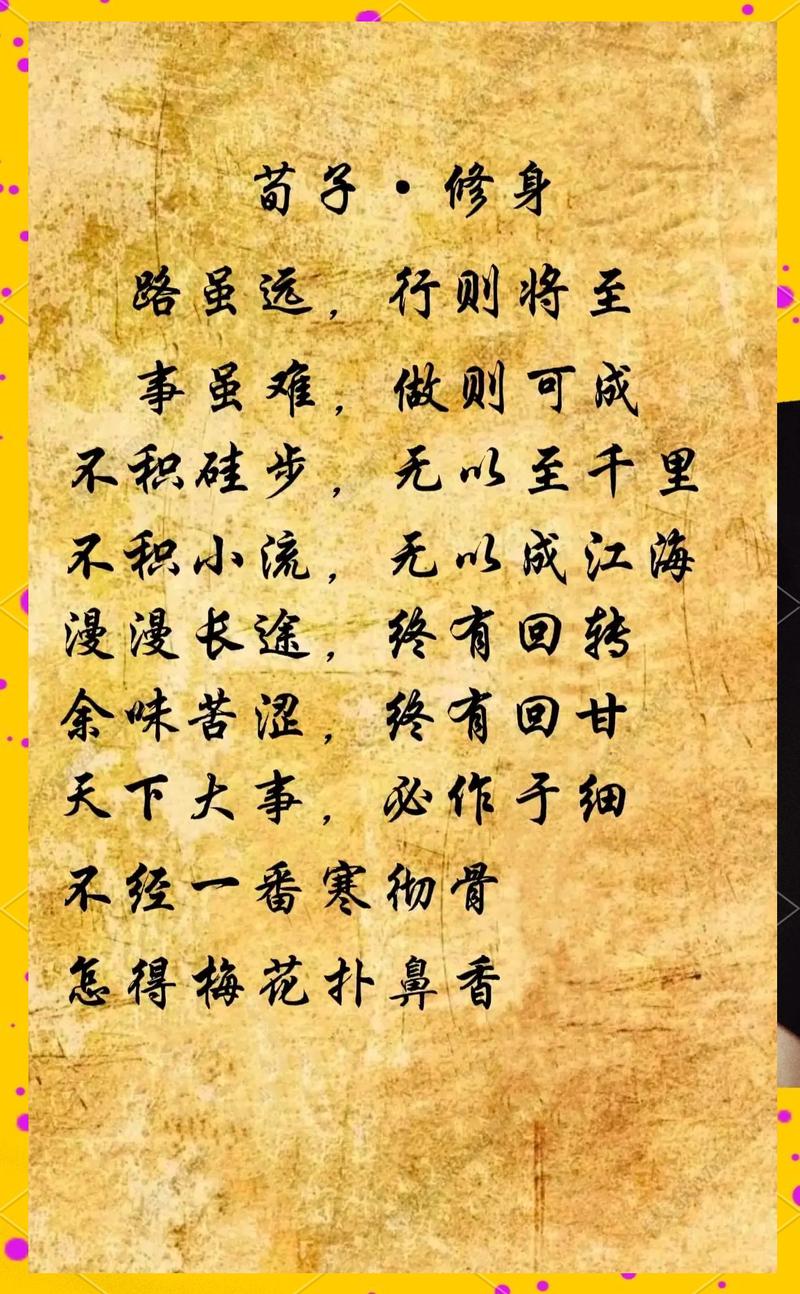 荀子·修身
路虽远，行则将至
事虽难，做则可成
不积硅步，无以至千里
不积小流，无以成江海
漫漫长途，终有回转
余味苦涩，终有回甘
天下大事，必作于细
不经一番寒彻骨
怎得梅花扑鼻香